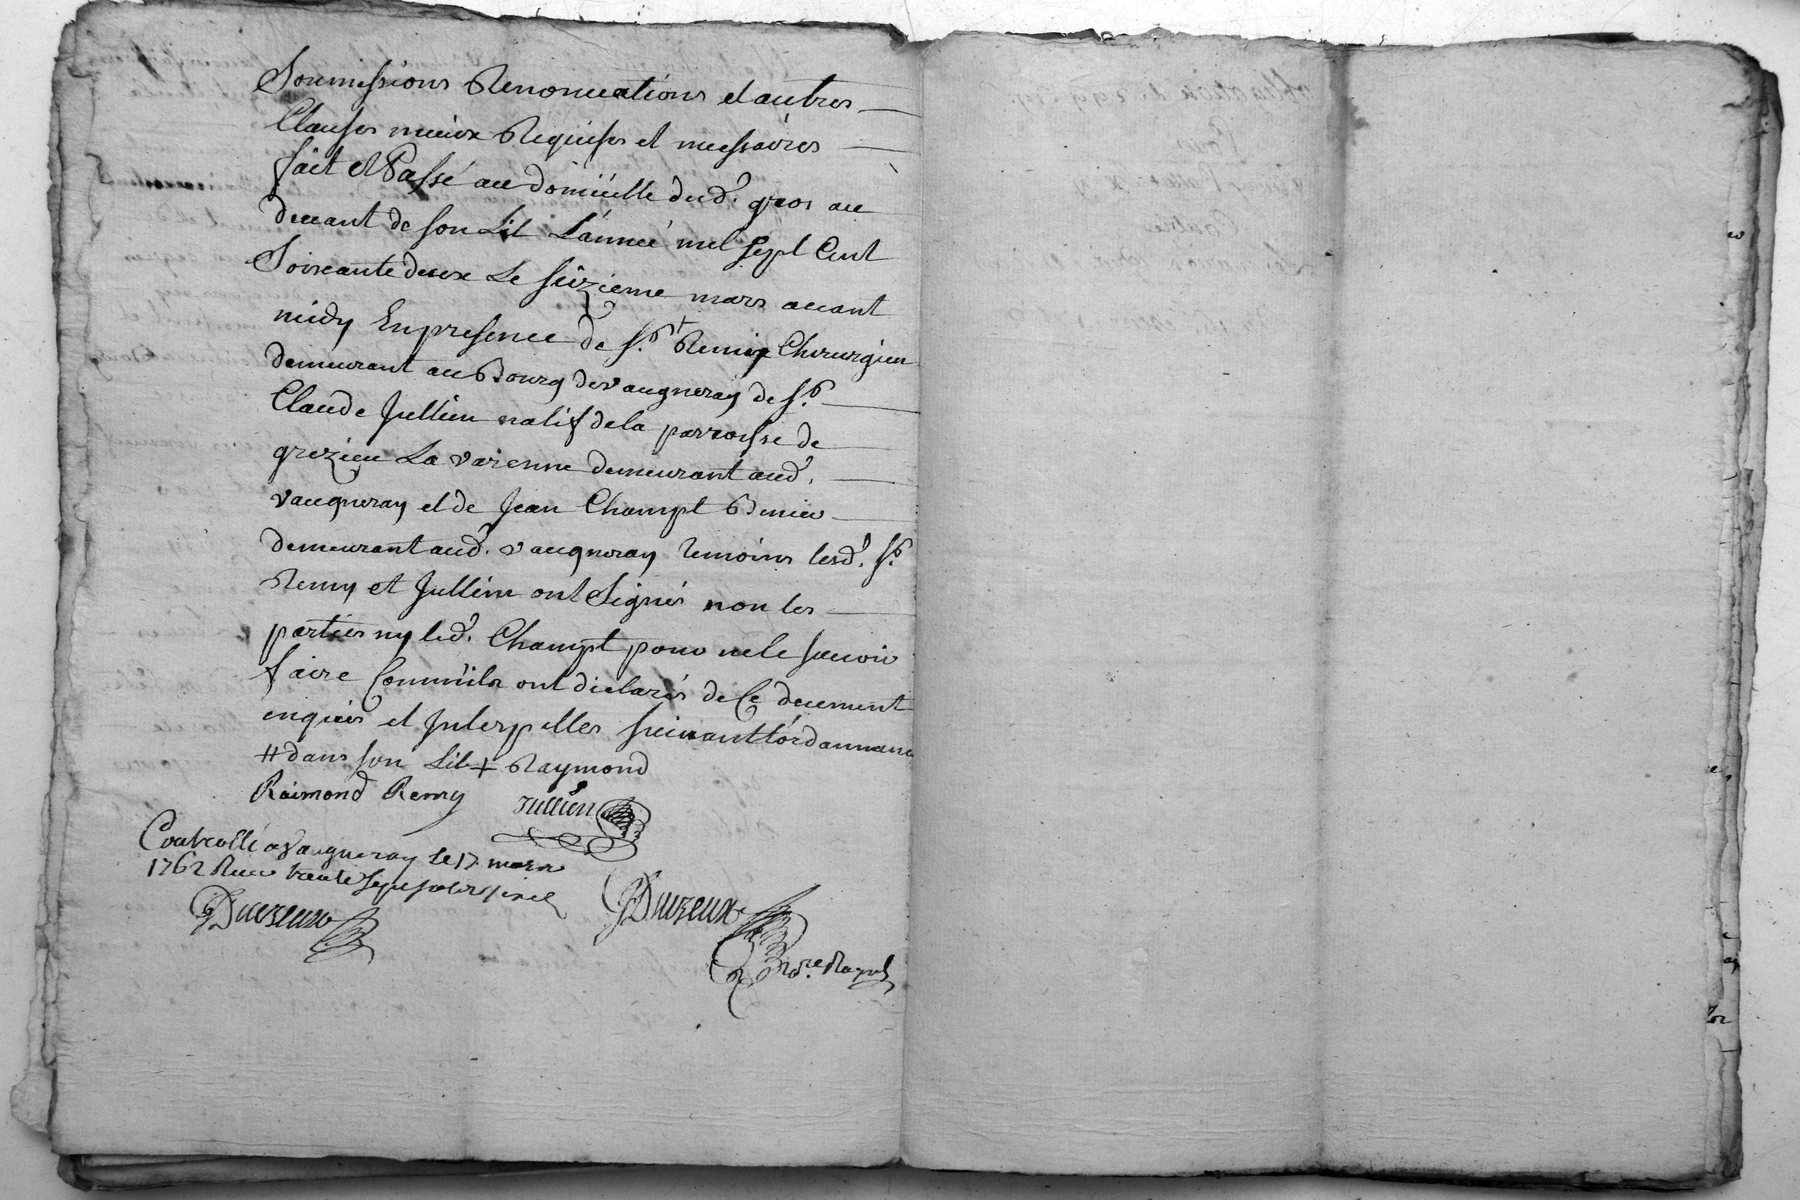 Soumissions Renonciations et autres
Clauses mieux Requises et necessaires
fait et Passé au domicille dud. gros au
devant de son Lit L'année mil sept Cent
Soixante deux Le seizieme mars avant
midy En presence de Sr. + Remy Chirurgien
demeurant au Bourg de vaugneray de Sr.
Claude Jullien natif de la parroisse de
grezieu La varenne demeurant aud.
vaugneray et de Jean Champt
demeurant aud. vaugneray temoins lesd. Srs.
Remy et Jullien ont Signés non les
parties ny led. Champt pour ne le savoir
faire Comm'ils ont declarés de Ce deuement
enquis et Interpelles suivant l'ordonnance
# dans son Lit + Raymond
Raimond Remy Jullien
Controllé a Vaugneray le 17. mars
1762 Reçu trente sept sols
Durieux
Durieux
Nore. Royal